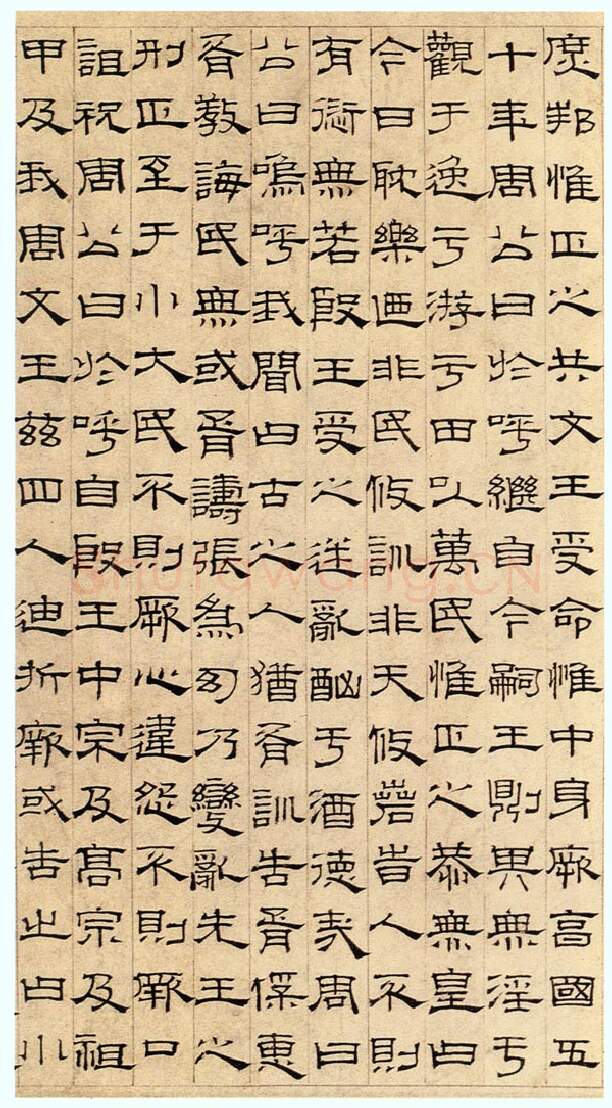 庶邦惟正之共文王受命惟中身厥享國五
十年周公曰於呼繼自今嗣王則其無淫于
觀于逸于游于田以萬民惟正之恭無皇曰
今日耽樂迺非民攸訓非天攸若旹人不則
有愆無若殷王受之迷亂酗于酒德哉周曰
公曰嗚呼我聞曰古之人猶胥訓告胥保惠
胥教誨民無或胥譸張為幻乃變亂先王之
刑正至于小大民不則厥心違怨不則厥口
詛祝周公曰於呼自殷王中宗及高宗及祖
甲及我周文王茲四人迪哲厥或告之曰小
shufawang.CN